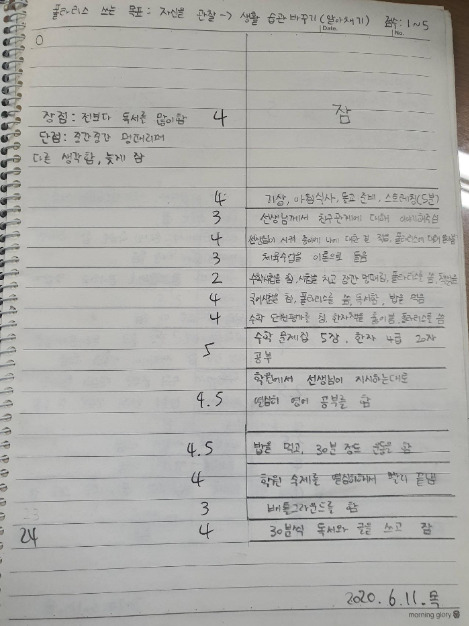 폴라리스 쓰는 목표: 자신을 관찰 -> 생활 습관 바꾸기(알아채기) 점수: 1~5
Date
No.
0
장점: 전보다 독서를 많이함 4 잠
단점: 중간중간 멍때리며
다른 생각함, 늦게 잠
4 기상, 아침식사, 등교 준비, 스트레칭(5분)
3 선생님께서 친구관계에 대해 이야기하심
4 선생님이 시켜 종이에 나에 대한 걸
3 체육수업을 이론으로 들음
2 수학시험을 침, 시험을 치고 잠깐 멍때림, 폴라리스를 씀,
4 국어시험을 침, 폴라리스를 씀, 독서함, 밥을 먹음
4 수학 단원평가를 침, 한자책을 풀어봄, 폴라리스를 씀
5 수학 문제집 5장, 한자 4급 20자
공부
학원에서 선생님이 지시하는대로
4.5 열심히 영어 공부를 함
4.5 밥을 먹고, 30분 정도 운동을 함
4 학원 숙제를 열심히해서 빨리 끝냄
23 3 배틀그라운드를 함
24 4 30분씩 독서와 글을 쓰고 잠
2020. 6. 11. 목
morning glory